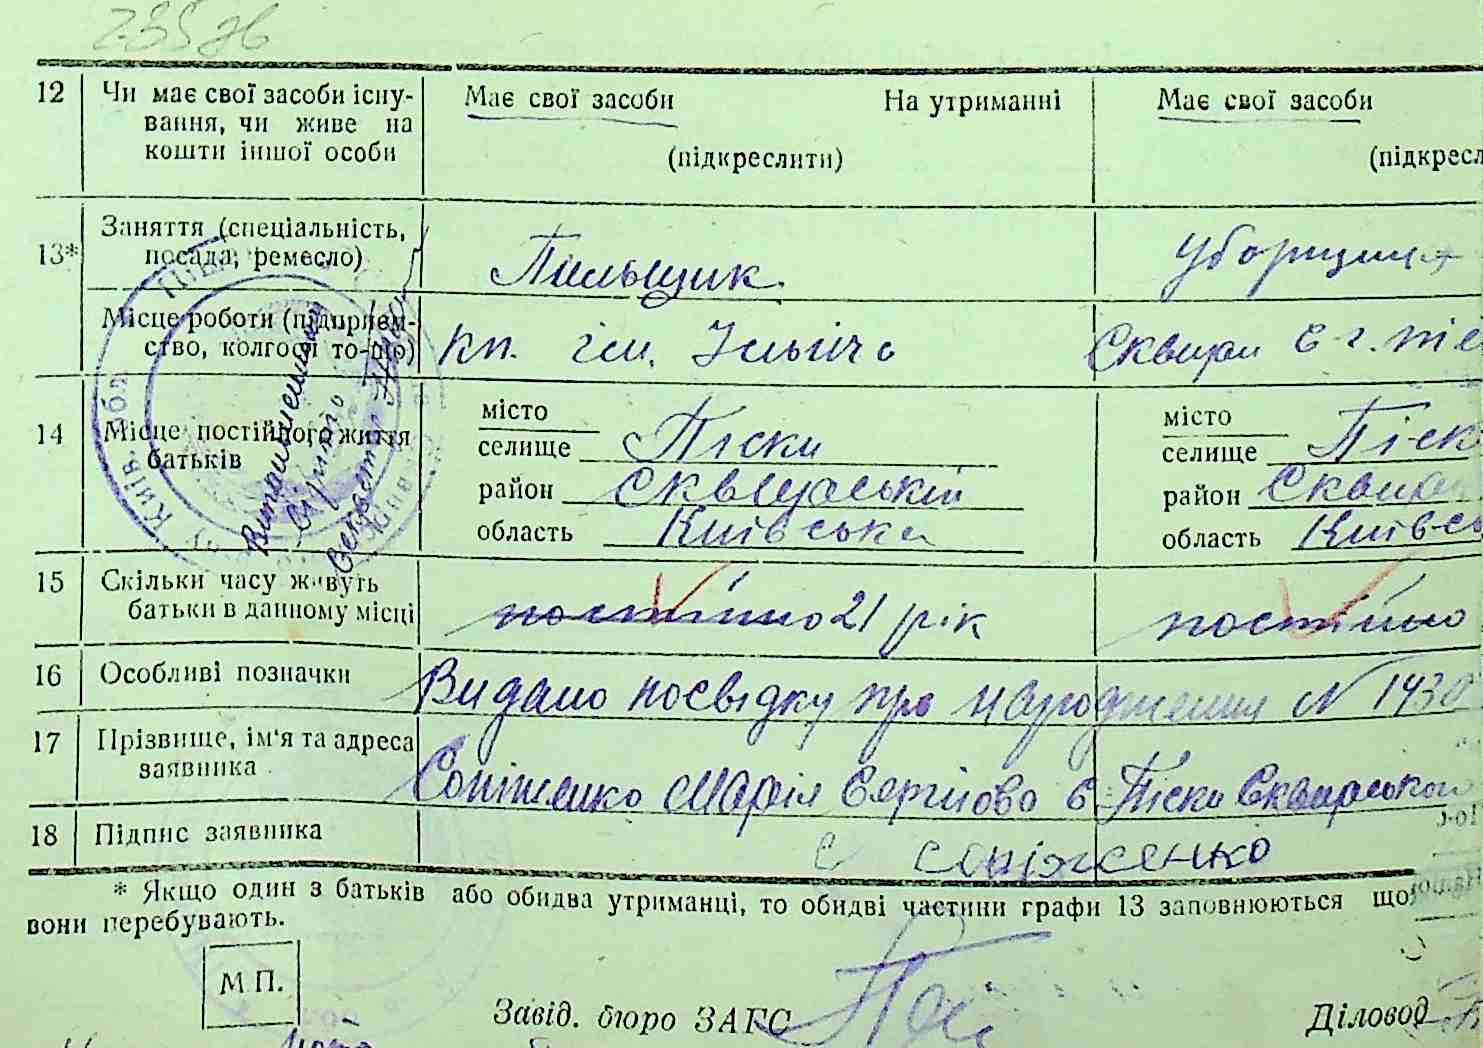 12 Чи має свої засоби існу- Має свої засоби На утриманні Має свої засоби
вання, чи живе на
кошти іншої особи (підкреслити) (підкресл
13* Заняття (спеціальність,
посада, ремесло) Пильщик. Уборщиця
Місце роботи (підприєм-
ство, колгосп то-що) кп. ім. Ілліча Сквира
14 Місце постійного життя
батьків
місто місто
селище Піски селище Піск
район Сквирський район Сквир
область Київська область Київсь
15 Скільки часу живуть
батьки в данному місці постійно 21 рік постійно
16 Особливі позначки Видано посвідку про народження N 1430
17 Прізвище, ім'я та адреса
заявника Сопіженко Марія Сергіївна с Піски Сквирського
18 Підпис заявника сопіженко
* Якщо один з батьків або обидва утриманці, то обидві частини графи 13 заповнюються що
вони перебувають.
М.П.
Завід. бюро ЗАГС Діловод